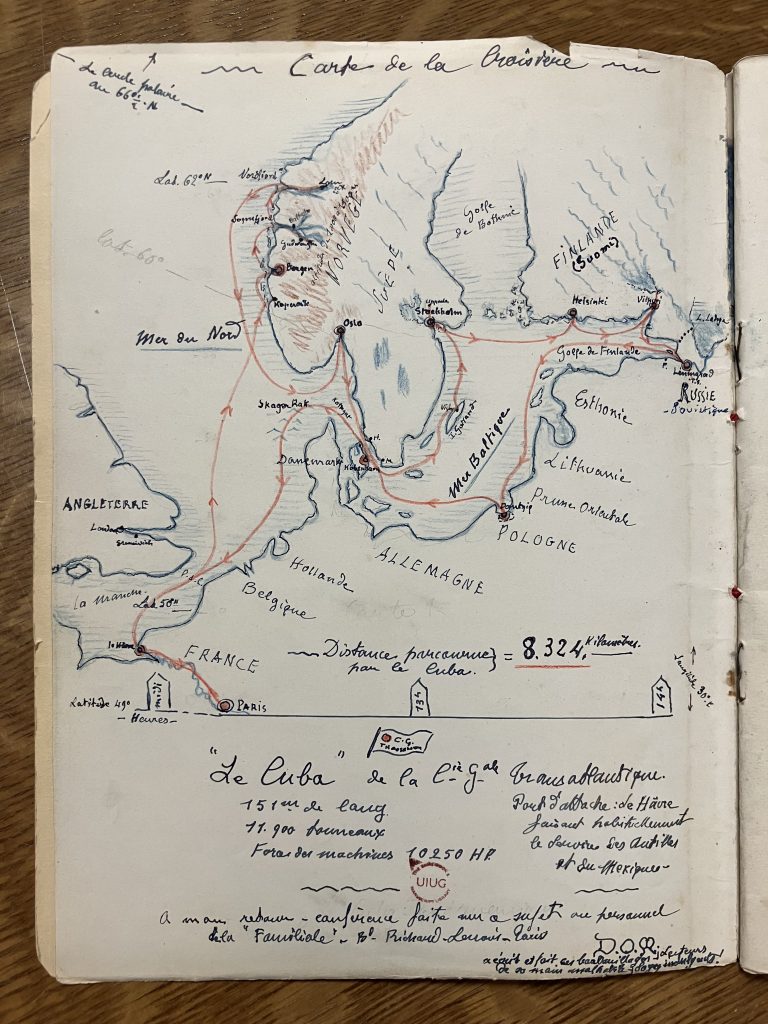 Carte de la Croisière
Le Cercle polaire
au 66° ½ N
Lat. 62° N
Nordfjord
Loen
Sognefjord
Lat. 60°
Bergen
Koperwik
NORVÈGE
SUÈDE
Golfe
de Bothnie
FINLANDE
(Suomi)
Uppsala
Stockholm
Helsinki
L. Ladoga
Mer du Nord
Oslo
Golfe de Finlande
Leningrad
RUSSIE
Soviétique
Skager Rak
I. Gotland
Esthonie
Danemark
Mer Baltique
Lithuanie
ANGLETERRE
Prusse Orientale
POLOGNE
Greenwich
Hollande
ALLEMAGNE
P. d. C.
La Manche
Lat. 50° N
Belgique
le Hâvre
FRANCE
Distance parcourue
par le Cuba.
= 8.324. Kilomètres.
Latitude 49°
Heures
midi
PARIS
13 h
14 h
Longitude 30° E
C. G.
"Le Cuba" de la Cie Gale Transatlantique.
151 m de long
11.900 tonneaux
Force des machines 10250 HP.
Port d'attache: le Hâvre
faisant habituellement
le service des Antilles
et du Mexique
UIUG
A mon retour - conférence faite sur ce sujet au personnel
de la "Familiale" - Bd Richard-Lenoir - Paris